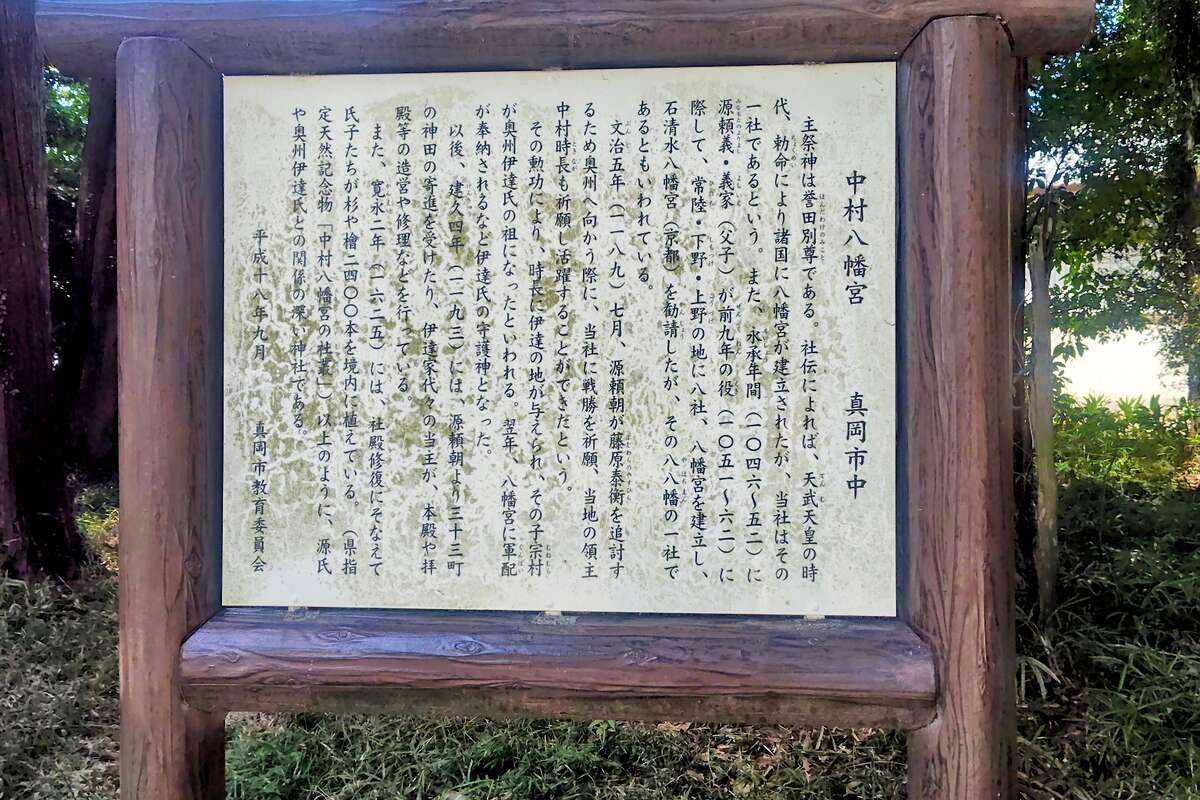 中村八幡宮　　　真岡市中
主祭神は誉田別尊である。社伝によれば、天武天皇の時
代、勅命により諸国に八幡宮が建立されたが、当社はその
一社であるという。また、永承年間（一〇四六〜五二）に
源頼義・義家（父子）が前九年の役（一〇五一〜六二）に
際して、常陸・下野・上野の地に八社、八幡宮を建立し、
石清水八幡宮（京都）を勧請したが、その八八幡の一社で
あるともいわれている。
文治五年（一一八九）七月、源頼朝が藤原泰衡を追討す
るため奥州へ向かう際に、当社に戦勝を祈願、当地の領主
中村時長も祈願し活躍することができだという。
その勲功により、時長に伊達の地が与えられ、その子宗村
が奥州伊達氏の祖になったといわれる。翌年、八幡宮に軍配
が奉納されるなど伊達氏の守護神となった。
以後、建久四年（一一九三）には、源頼朝より三十三町
の神田の寄進を受けたり、伊達家代々の当主が、本殿や拝
殿等の造営や修理などを行っている。
また、寛永二年（一六二五）には、社殿修復にそなえて
氏子たちが杉や檜二四〇〇本を境内に植えている。（県指
定天然記念物「中村八幡宮の社叢」）以上のように、源氏
や奥州伊達氏との関係の深い神社である。
平成十八年九月　　　真岡市教育委員会